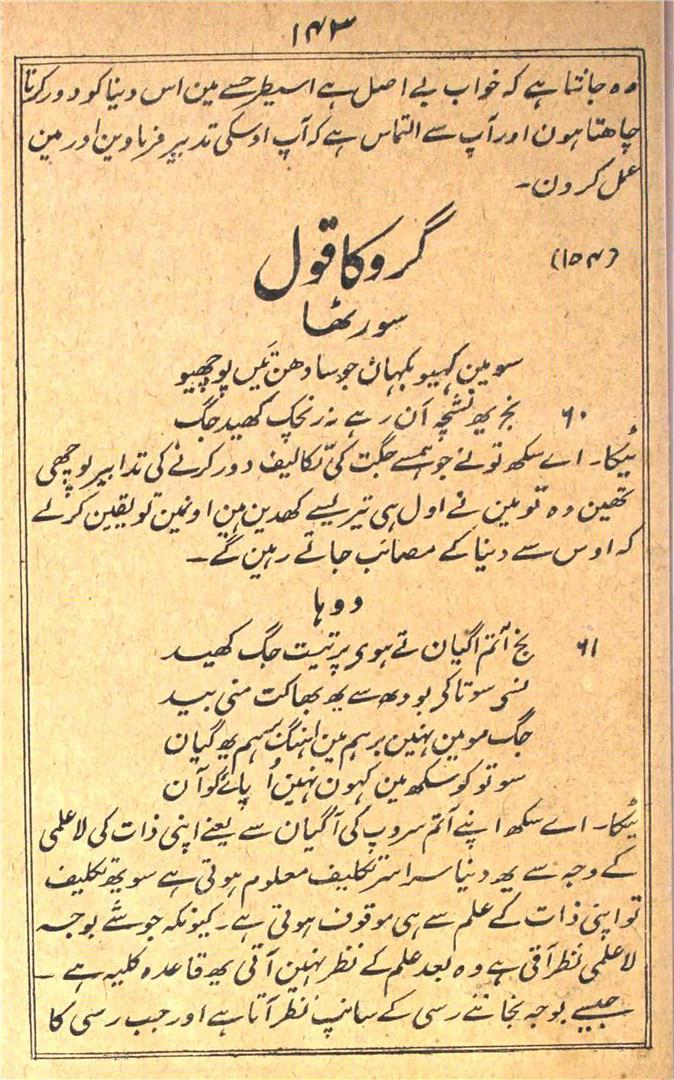 ۱۴۳
وہ جانتا ہے کہ خواب بے اصل ہے اسیطرحسے مین اس دنیا کو دور کرنا
چاھتا ہون اور آپ سے التماس ہے کہ آپ اوسکی تدبیر فرماوین اور مین
عمل کرون۔
(۱۵۴)
گرو کا قول
سورٹھا
سو مین کہیو بکہان جو سادھن تین پوچھیو
۶۰ نج یھ نشچہ آن رہے نہ رنچک کھید جگ
ٹیکا۔ اے سکھ تونے جو ہمسے جگت کی تکالیف دور کرنے کی تدابیر پوچھی
تھین وہ تو مین نے اول ہی تیریسے کھدین ہین اونمین تو یقین کرلے
کہ اوس سے دنیا کے مصائب جاتے رہین گے۔
دوہا
۶۱ نج آتم اگیان تے ہوی پرتیت جگ کھید
نسی سو تاکی بودھ سے یھ بھاکت منی بید
جگ مومین نہین برہم مین اہنگ برہم یھ گیان
سو توکو سکھ مین کہون نہین اُپائے کو آن
ٹیکا۔ اے سکھ اپنے آتم سروپ کی آگیان سے یعنے اپنی ذات کی لاعلمی
کے وجہ سے یھ دنیا سراسر تکلیف معلوم ہوتی ہے سو یھ تکلیف
تو اپنی ذات کے علم سے ہی موقوف ہوتی ہے۔ کیونکہ جو شے بوجہ
لاعلمی نظر آتی ہے وہ بعد علم کے نظر نہین آتی یھ قاعدہ کلیہ ہے۔
جیسے بوجہ نجاننے رسی کے سانپ نظر آتا ہے اور جب رسی کا